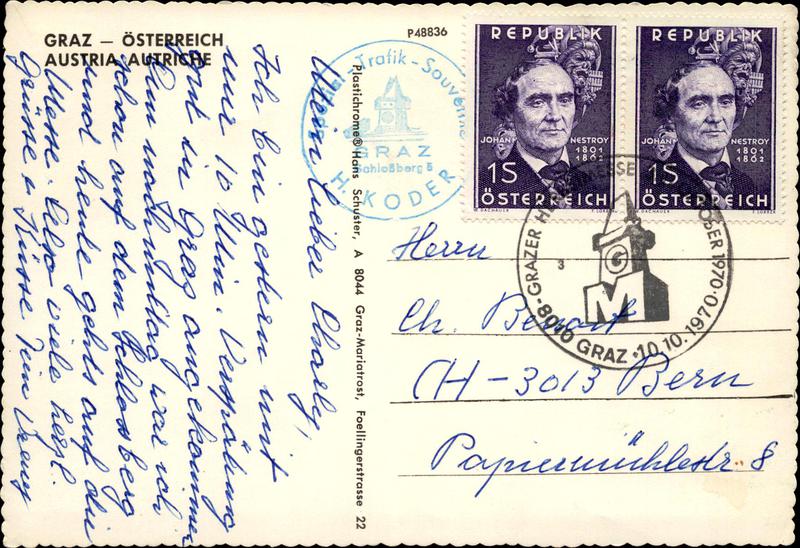 GRAZ — ÖSTERREICH
AUSTRIA AUTRICHE
P48836
Mein lieber Charly,
Ich bin gestern mit
nur 10 Min. Verspätung
in Graz angekommen
Am nachmittag war ich
schon auf dem Schlossberg
und heute gehts auf die
Messe. Also viele herzl.
Grüsse u. Küsse
Plastichrome® Hans Schuster, A 8044 Graz-Mariatrost, Foellingerstrasse 22
Trafik - Souvenir
GRAZ
Schloßberg 5
H. KODER
REPUBLIK
JOHANN NESTROY
1801
1862
1S
ÖSTERREICH
REPUBLIK
JOHANN NESTROY
1801
1862
1S
ÖSTERREICH
GRAZER
1970
3
G
M
8010 GRAZ · 10.10.1970
Herrn
Ch.
CH-3013 Bern
Papiermühlestr. 8